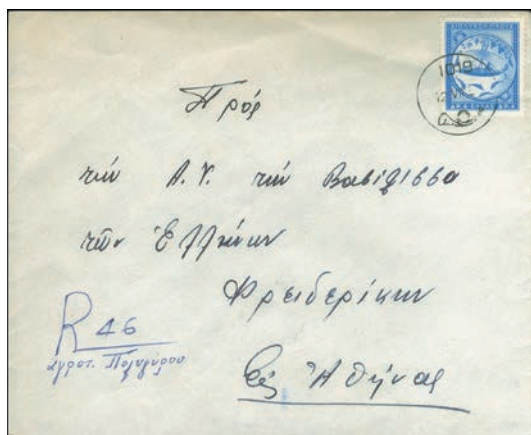 Πρός
τήν Α.Υ. τήν Βασίλισσα
τῶν Ἑλλήνων
Φρειδερίκην
Εἰς Ἀθήνας
R 46
ἀγροτ.